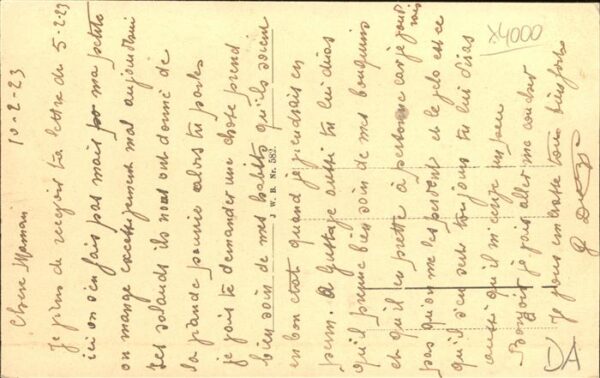 10-2-23
Chere Maman
Je viens de recevoir ta lettre du 5-2-23
ici on s'en fais pas mais pas ma petite
on mange excessivement mal aujourd'hui
Les salauds ils nous ont donné de
la viande pourrie alors tu parles
je vais te demander une chose prend
bien soin de mes habits qu'ils soient
en bon état quand je viendrais en
perm. A Gustave aussi tu lui diras
qu'il prenne bien soin de mes bouquins
et qu'il en prette à personne car je
pas qu'on me les perdent et le velo est ce
qu'il s'en sert toujours tu lui diras
aussi qu'il m'ecrive un peu
Bonsoir je vais aller me coucher
Je vous embrasse tous bien fort
J. W. B. Nr. 582.
X4000
DA